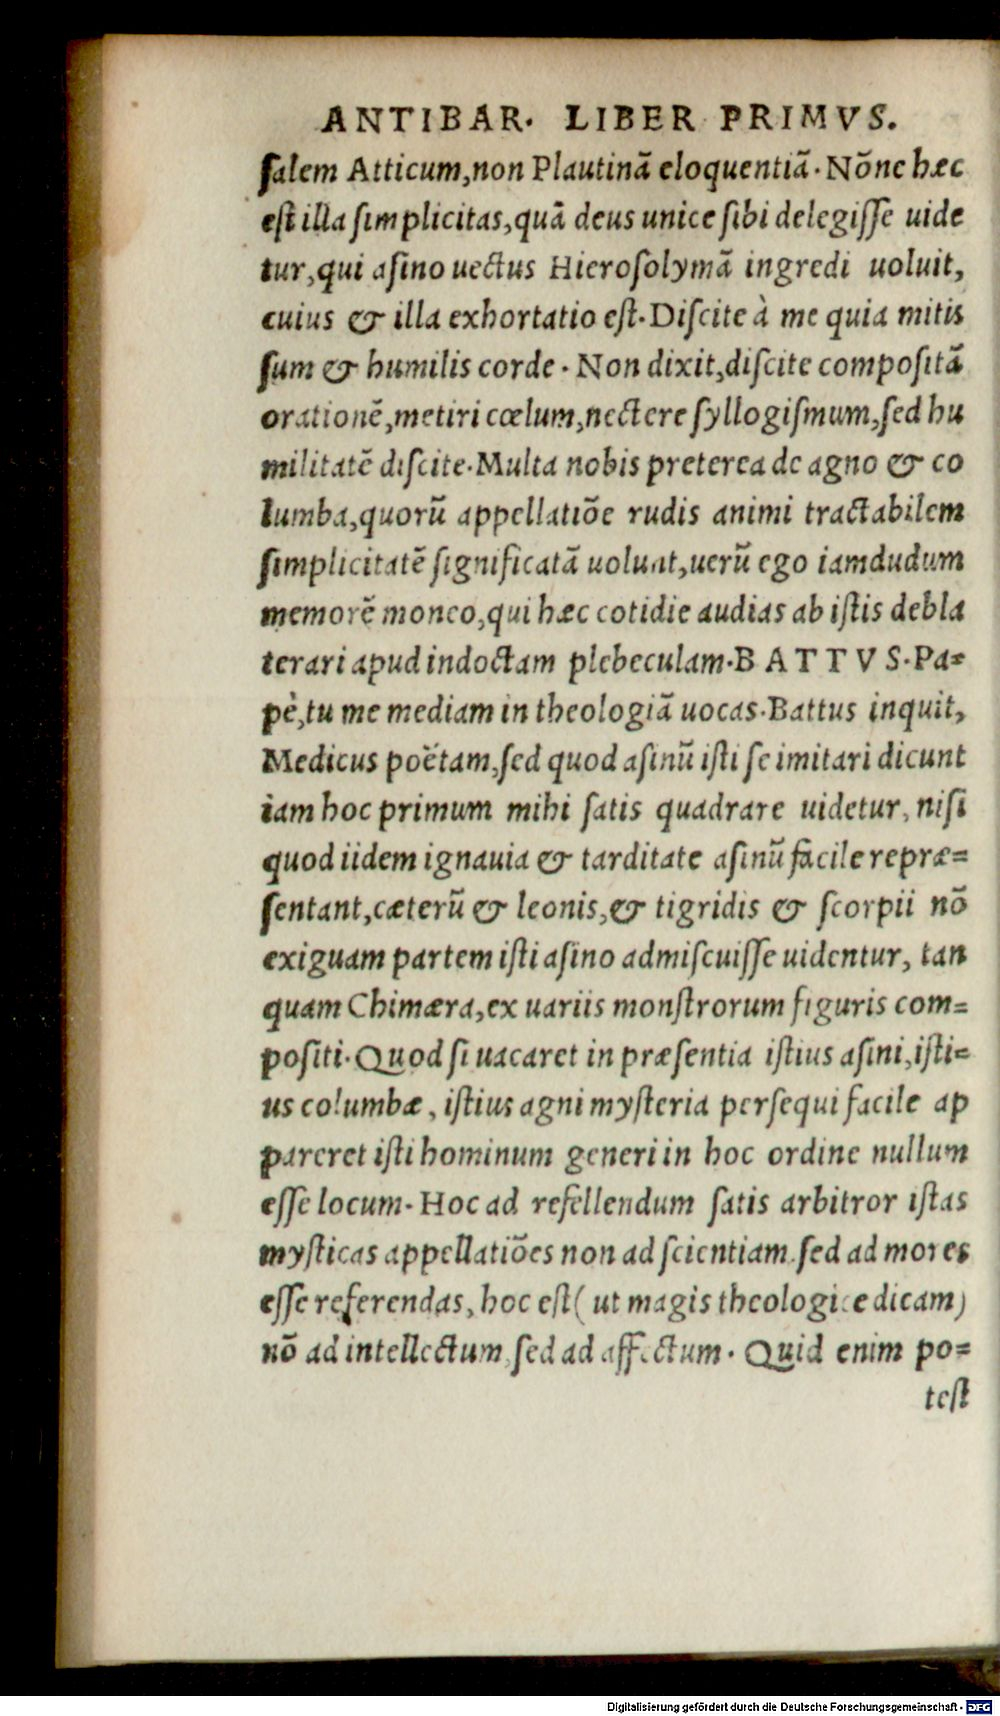 ANTIBAR. LIBER PRIMVS.
ſalem Atticum,non Plautinã eloquentiã. Nõne hæc
eſt illa ſimplicitas,quã deus unice ſibi delegiſſe uide
tur,qui aſino uectus Hieroſolymã ingredi uoluit,
cuius & illa exhortatio eſt. Diſcite à me quia mitis
ſum & humilis corde. Non dixit,diſcite compoſitã
orationẽ,metiri cœlum,nectere ſyllogiſmum,ſed hu
militatẽ diſcite. Multa nobis preterea de agno & co
lumba,quorũ appellatiõe rudis animi tractabilem
ſimplicitatẽ ſignificatã uolunt,uerũ ego iamdudum
memorẽ moneo,qui hæc cotidie audias ab iſtis debla
terari apud indoctam plebeculam. BATTVS. Pa=
pè,tu me mediam in theologiã uocas. Battus inquit,
Medicus poëtam,ſed quod aſinũ iſti ſe imitari dicunt
iam hoc primum mihi ſatis quadrare uidetur, niſi
quod iidem ignauia & tarditate aſinũ facile repræ=
ſentant,cæterũ & leonis,& tigridis & ſcorpii nõ
exiguam partem iſti aſino admiſcuiſſe uidentur, tan
quam Chimæra,ex uariis monſtrorum figuris com=
poſiti. Quod ſi uacaret in præſentia iſtius aſini,iſti=
us columbæ, iſtius agni myſteria perſequi facile ap
pareret iſti hominum generi in hoc ordine nullum
eſſe locum. Hoc ad refellendum ſatis arbitror iſtas
myſticas appellatiões non ad ſcientiam,ſed ad mores
eſſe referendas, hoc eſt( ut magis theologice dicam)
nõ ad intellectum,ſed ad affectum. Quid enim po=
teſt
Digitalisierung gefördert durch die Deutsche Forschungsgemeinschaft - DFG